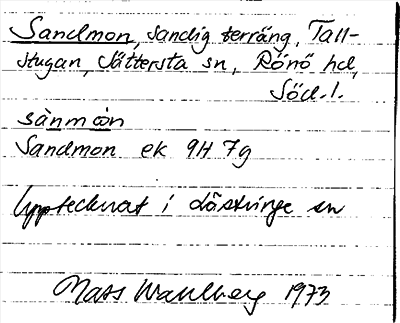 Sandmon, sandig terräng, Tall-
stugan, Sättersta sn, Rönö hd,
Söd.l.
sànmòn
Sandmon ek 9H 7g
Upptecknat i Lästringe sn
Mats Wahlberg 1973